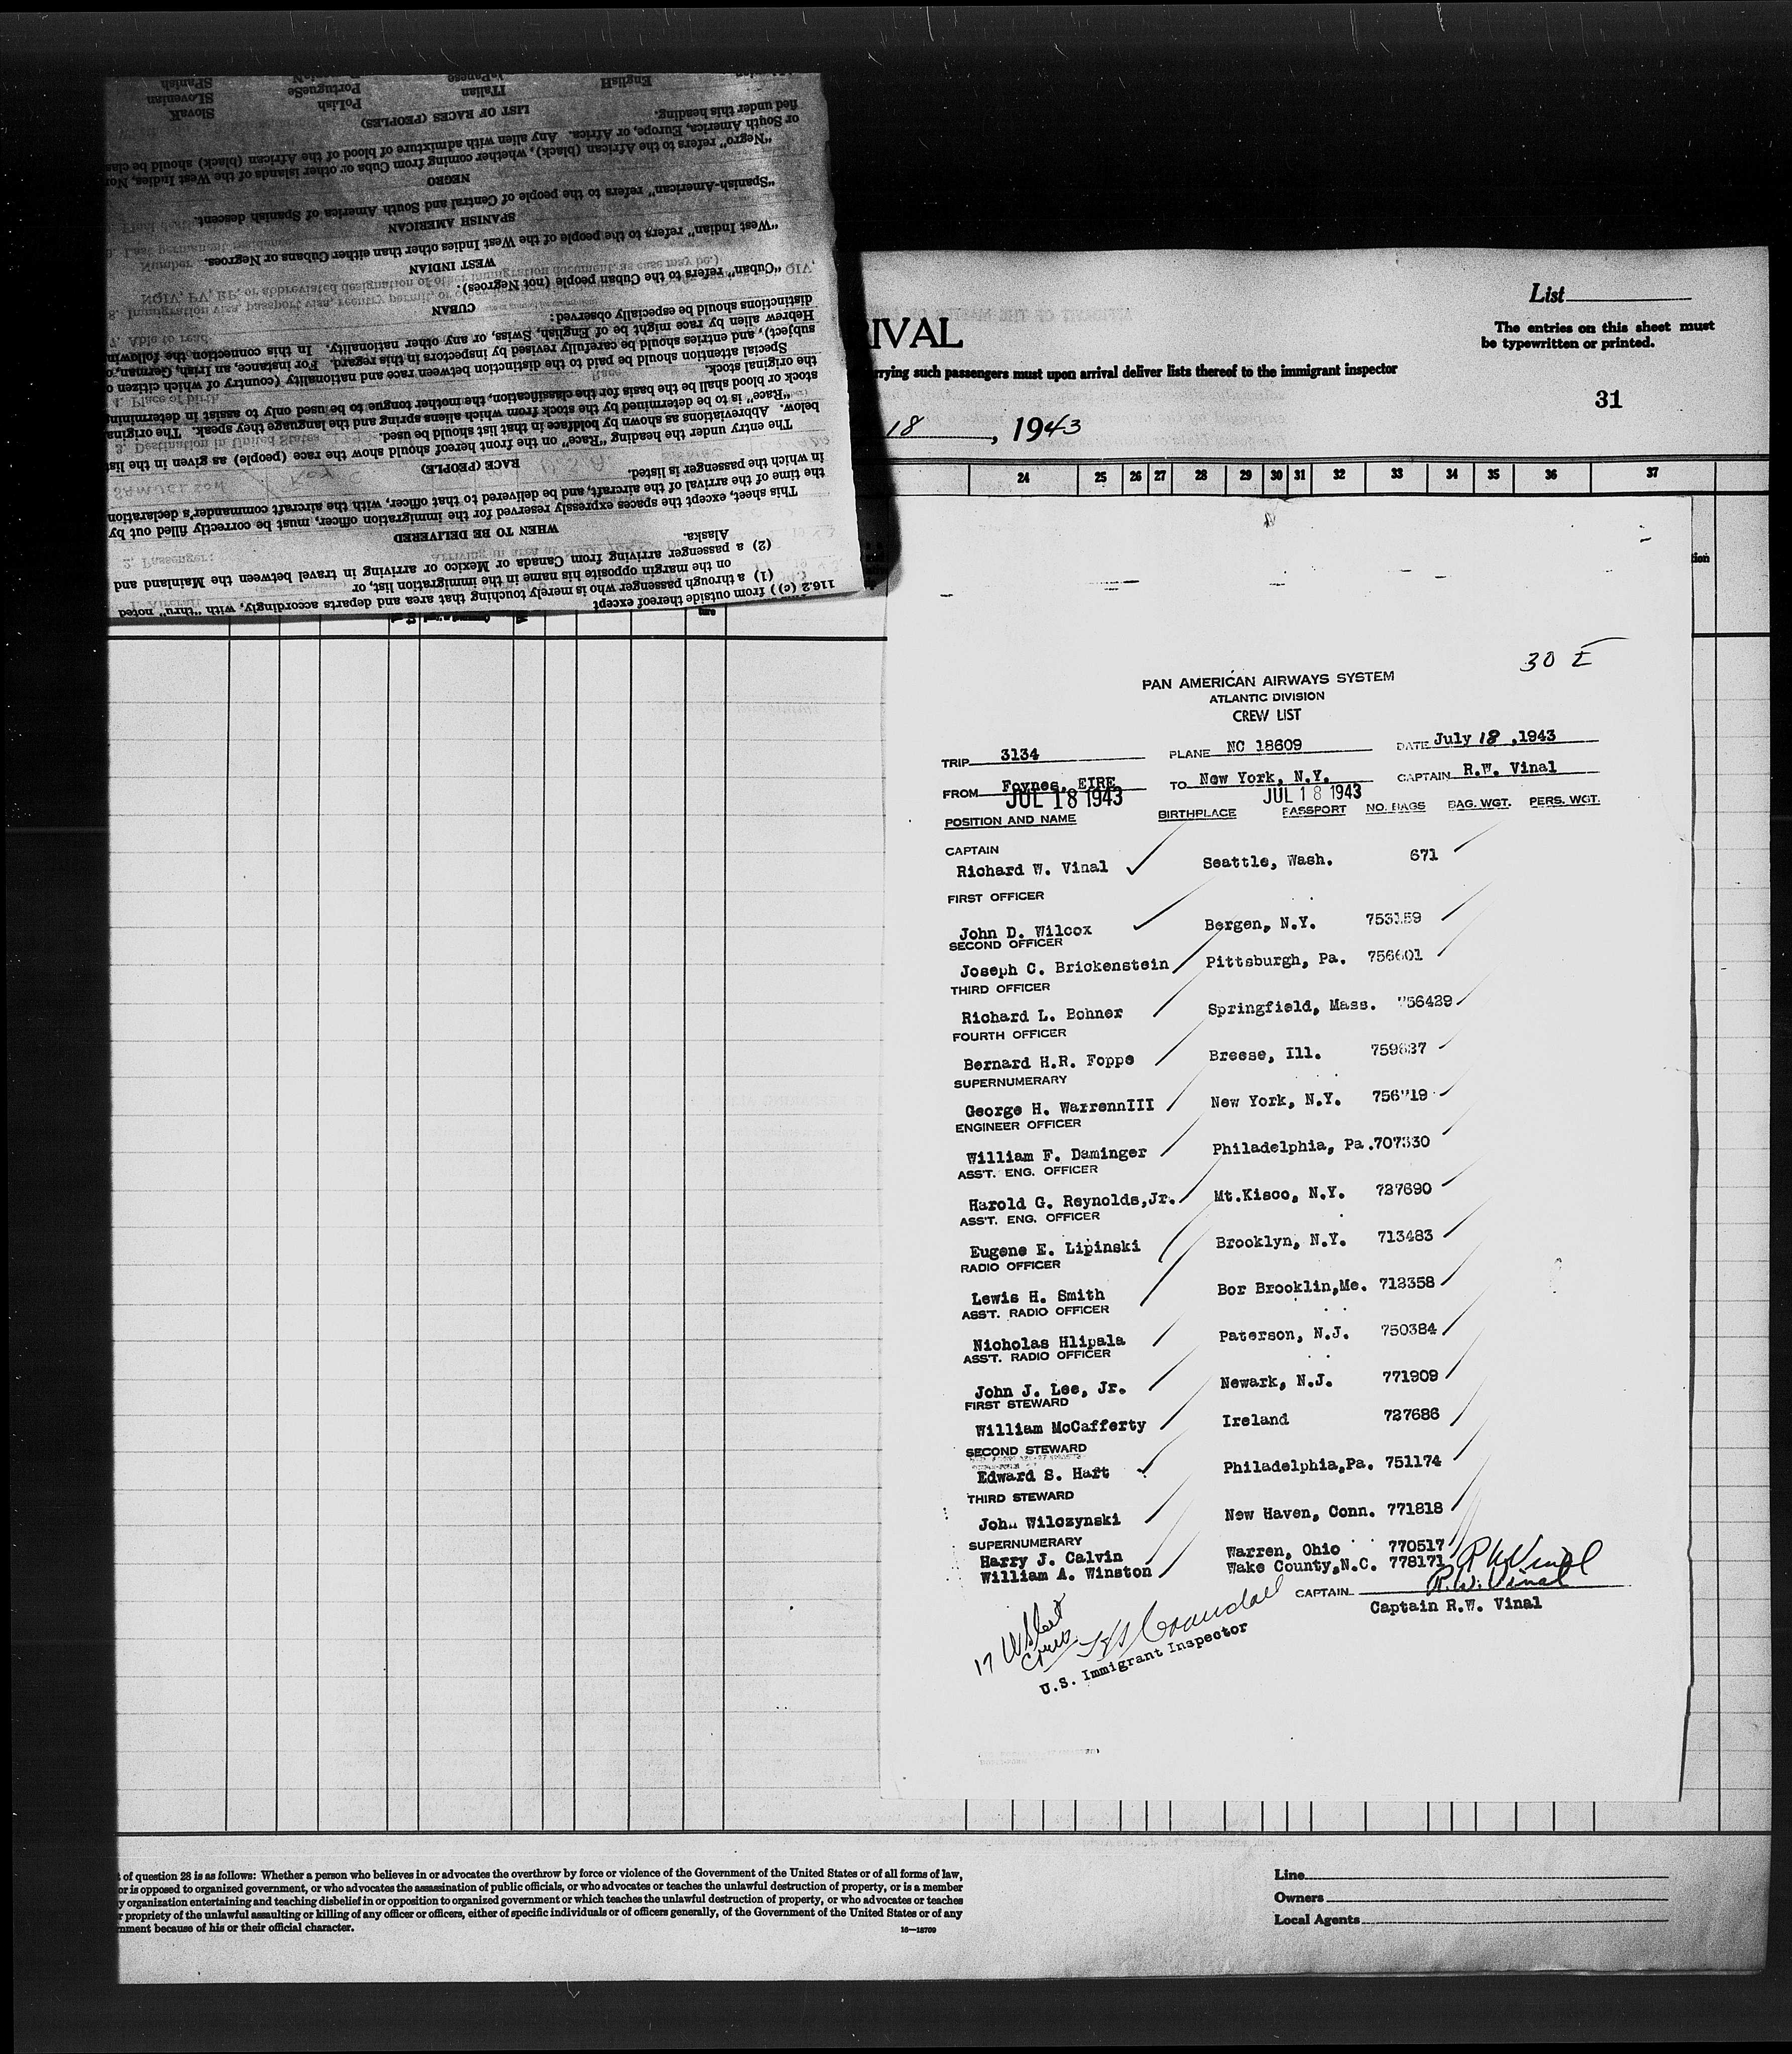 SPanish
SLovenian
SlovaK
PortugueSe
PoLish
JaPanese
ITalian
EnglisH
LIST OF RACES (PEOPLES)
fied under this heading.
or South America, Europe, or Africa. Any alien with admixture of blood of the African (black) should be clas
"Negro" refers to the African (black), whether coming from Cuba or other islands of the West Indies, Nor
NEGRO
"Spanish-American" refers to the people of Central and South America of Spanish descent.
SPANISH AMERICAN
"West Indian" refers to the people of the West Indies other than either Cubans or Negroes.
WEST INDIAN
"Cuban" refers to the Cuban people (not Negroes).
CUBAN
distinctions should be especially observed:
Hebrew alien by race might be of English, Swiss, or any other nationality. In this connection the followin
subject), and entries should be carefully revised by inspectors in this regard. For instance, an Irish, German, o
Special attention should be paid to the distinction between race and nationality (country of which citizen o
the original stock.
stock or blood shall be the basis for the classification, the mother tongue to be used only to assist in determining
"Race" is to be determined by the stock from which aliens spring and the language they speak. The origina
below. Abbreviations as shown by boldface in that list should be used.
The entry under the heading "Race" on the front hereof should show the race (people) as given in the list
RACE (PEOPLE)
in which the passenger is listed.
the time of the arrival of the aircraft, and be delivered to that officer, with the aircraft commander's declaration
This sheet, except the spaces expressly reserved for the immigration officer, must be correctly filled out by
WHEN TO BE DELIVERED
Alaska.
(2) a passenger arriving from Canada or Mexico or arriving in travel between the Mainland and
on the margin opposite his name in the immigration list, or
(1) a through passenger who is merely touching that area and departs accordingly, with "thru" noted
116.2 (c)) from outside thereof except
List
RIVAL
The entries on this sheet must
be typewritten or printed.
rrying such passengers must upon arrival deliver lists thereof to the immigrant inspector
31
18, 1943
24 25 26 27 28 29 30 31 32 33 34 35 36 37
30 E
PAN AMERICAN AIRWAYS SYSTEM
ATLANTIC DIVISION
CREW LIST
TRIP 3134 PLANE NC 18609 DATE July 18, 1943
FROM Foynes, EIRE TO New York, N.Y. CAPTAIN R.W. Vinal
JUL 18 1943 JUL 18 1943
POSITION AND NAME BIRTHPLACE PASSPORT NO. BAGS BAG. WGT. PERS. WGT.
CAPTAIN
Richard W. Vinal Seattle, Wash. 671
FIRST OFFICER
John D. Wilcox Bergen, N.Y. 753159
SECOND OFFICER
Joseph C. Brickenstein Pittsburgh, Pa. 756601
THIRD OFFICER
Richard L. Bohner Springfield, Mass. 756429
FOURTH OFFICER
Bernard H.R. Foppe Breese, Ill. 759637
SUPERNUMERARY
George H. WarrennIII New York, N.Y. 756719
ENGINEER OFFICER
William F. Daminger Philadelphia, Pa. 707330
ASS'T. ENG. OFFICER
Harold G. Reynolds,Jr. Mt.Kisco, N.Y. 727690
ASS'T. ENG. OFFICER
Eugene E. Lipinski Brooklyn, N.Y. 713483
RADIO OFFICER
Lewis H. Smith Bor Brooklin,Me. 712358
ASS'T. RADIO OFFICER
Nicholas Hlipala Paterson, N.J. 750384
ASS'T. RADIO OFFICER
John J. Lee, Jr. Newark, N.J. 771909
FIRST STEWARD
William McCafferty Ireland 727686
SECOND STEWARD
Edward S. Haft Philadelphia,Pa. 751174
THIRD STEWARD
John Wilczynski New Haven, Conn. 771818
SUPERNUMERARY
Harry J. Calvin Warren, Ohio 770517
William A. Winston Wake County,N.C. 778171
R W Vinal
CAPTAIN R.W. Vinal
Captain R.W. Vinal
17
Crandall
U.S. Immigrant Inspector
t of question 28 is as follows: Whether a person who believes in or advocates the overthrow by force or violence of the Government of the United States or of all forms of law,
or is opposed to organized government, or who advocates the assassination of public officials, or who advocates or teaches the unlawful destruction of property, or is a member
y organization entertaining and teaching disbelief in or opposition to organized government or which teaches the unlawful destruction of property, or who advocates or teaches
r propriety of the unlawful assaulting or killing of any officer or officers, either of specific individuals or of officers generally, of the Government of the United States or of any
nment because of his or their official character.
16—18709
Line
Owners
Local Agents